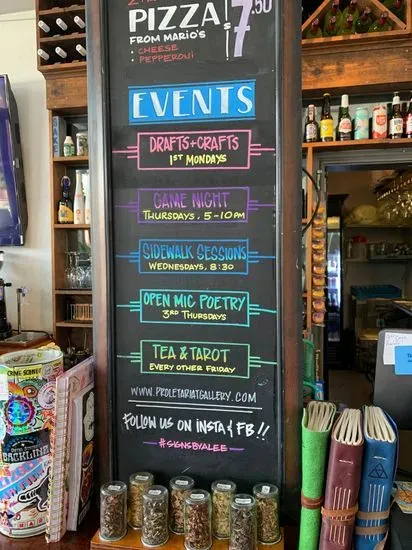 PIZZA $7.50
FROM MARIO'S
• CHEESE
• PEPPERONI
EVENTS
DRAFTS+CRAFTS
1ST MONDAYS
GAME NIGHT
THURSDAYS, 5-10PM
SIDEWALK SESSIONS
WEDNESDAYS, 8:30
OPEN MIC POETRY
3RD THURSDAYS
TEA & TAROT
EVERY OTHER FRIDAY
WWW.PROLETARIATGALLERY.COM
FOLLOW US ON INSTA & FB!!
#SIGNSBYALEE
BACKLINE